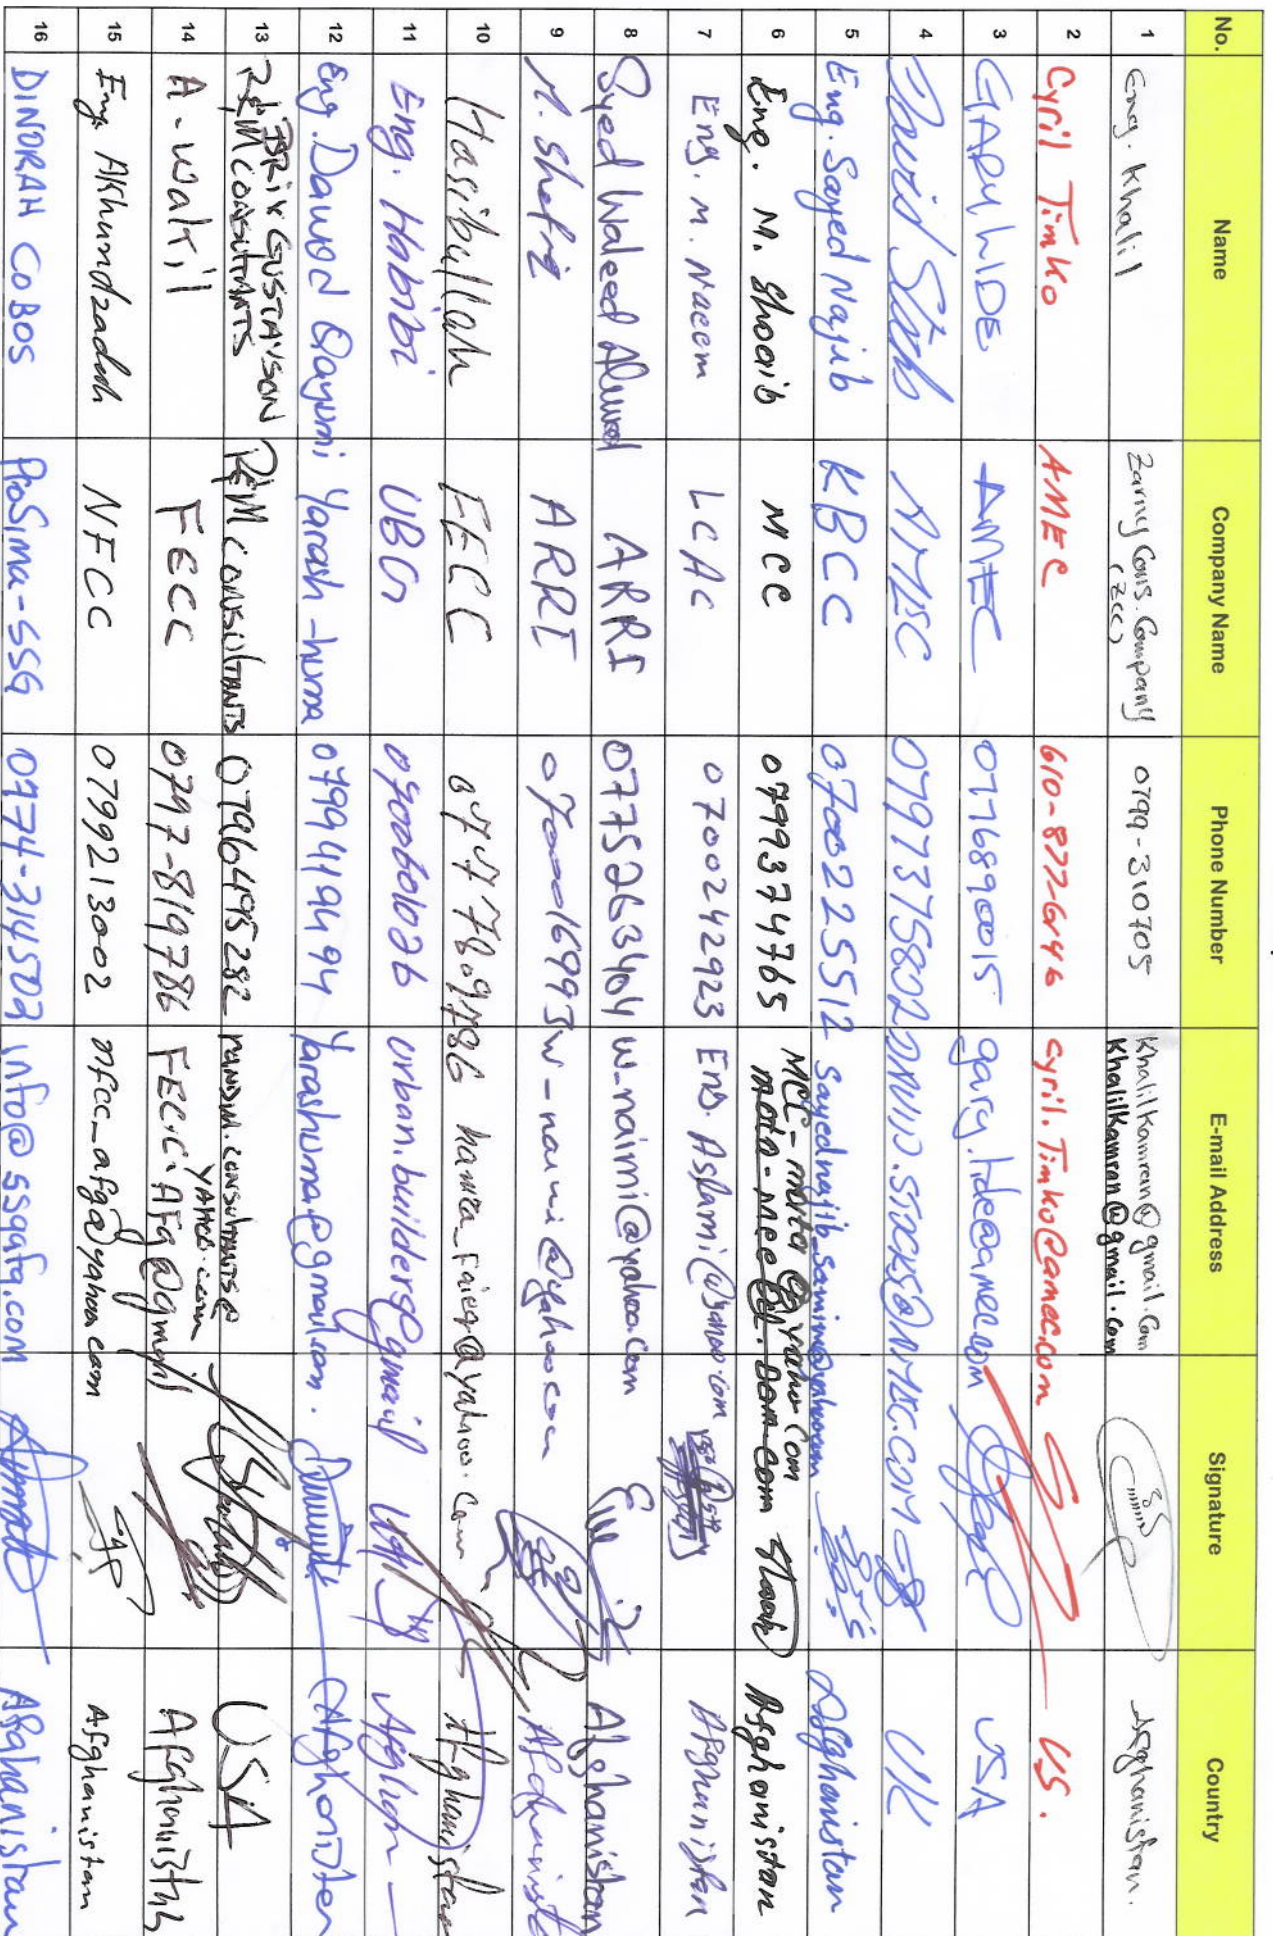 No. Name Company Name Phone Number E-mail Address Signature Country
1 Eng. Khalil Zarny Cons. Company (ZCC) 0799-310705 Khalilkamran@gmail.com Khalilkamran@gmail.com Afghanistan.
2 Cyril Timko AMEC 610-877-6146 cyril.Timko@amec.com US.
3 GARY HIDE AMEC 0776890015 gary.hide@amec.com USA
4 AMEC 0797375802 UK
5 Eng. Sayed Najib KBCC 0700225512 Afghanistan
6 Eng. M. Shoaib MCC 0799374765 Afghanistan
7 Eng. M. Naeem LCAC 0700242923 Eng.Aslami@yahoo.com Afghanistan
8 Syed Waleed Ahmad ARRI 0775263404 w_naimi@yahoo.com Afghanistan
9 M. Shafiq ARRI
10 Hasibullah FECC Afghanistan
11 Eng. Habibi UBG 0700601026 urban.builders@gmail Afghan
12 Eng. Dawod Qayumi Yarash-huma 0799419494 Yarashuma.f@gmail.com. Afghanisten
13 GUSTAVSON REM CONSULTANTS REM CONSULTANTS 0796495282 YAHOO.com USA
14 A-Wakil FECC 0797-819786 FECC.AFG@gmail Afghanistan
15 Eng. Akhundzadah NFCC 0799213002 nfcc_afg@yahoo.com Afghanistan
16 DINORAH COBOS ProSima-SSG 0774-314502 info@ssgafg.com Afghanistan